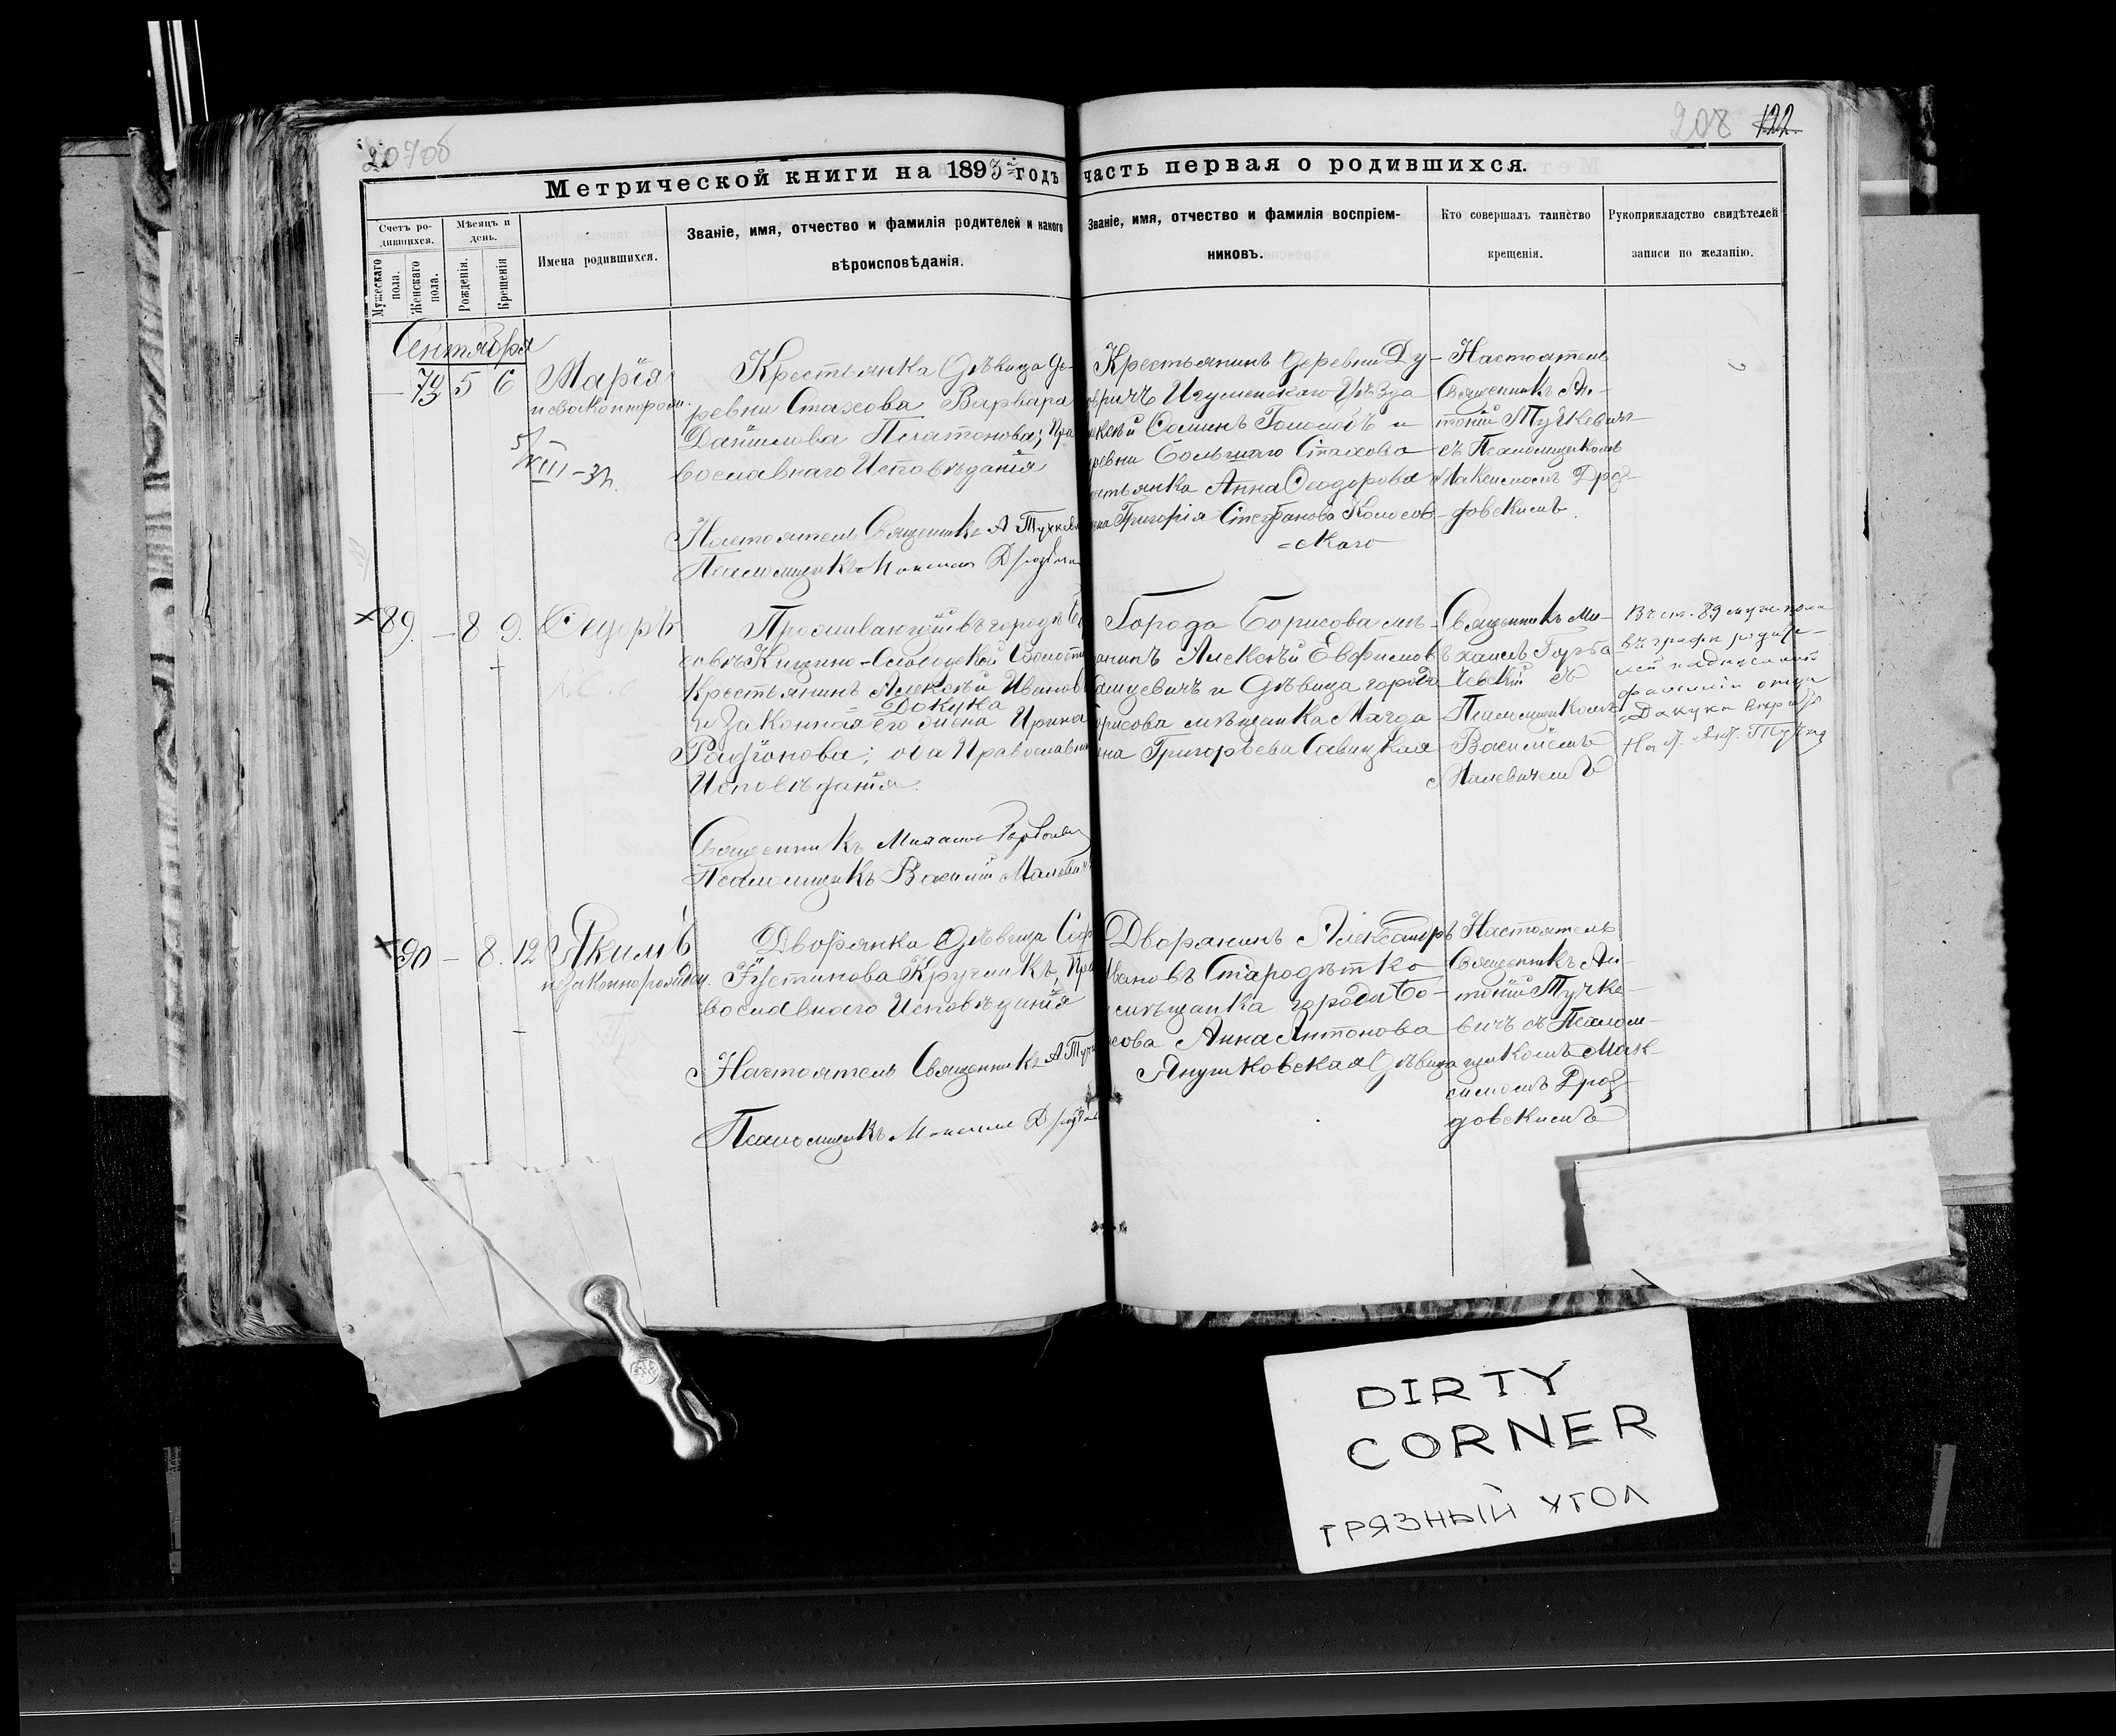 207об
208 122.
Метрической книги на 1893й годъ часть первая о родившихся.
Счетъ родившихся.
Мужескаго пола.
Женскаго пола.
Мѣсяцъ и день.
Рожденія.
Крещенія
Имена родившихся.
Званіе, имя, отчество и фамилія родителей и какого
вѣроисповѣданія.
Званіе, имя, отчество и фамилія воспріем-
никовъ.
Кто совершалъ таинство
крещенія.
Рукоприкладство свидѣтелей
записи по желанію.
Сентября
— 79 5 6
Марія
незаконнорожд.
Крестьянка дѣвица де-
ревни Стахова Варвара
Даніилова Платонова; Пра
вославнаго Исповѣданія
Настоятель Священникъ А Тучкев
Псаломщикъ Максимъ Дроздов
Крестьянинъ деревни Ду-
ричъ Игуменскаго Уѣзда
ексѣй Сominъ Голомобъ и
ревни Большаго Стахова
стьянка Анна Ѳеодорова
ена Григорія Стефанова Колосов-
=скаго
Настоятель
Священникъ Ан-
тоній Тучкевичъ
съ Псаломщикомъ
Максимомъ Дроз-
довскимъ.
89. — 8 9.
Сидоръ
Проживающій въ городѣ Бо
совѣ Кищино-Слободской Волости
Крестьянинъ Алексѣй Ивановъ
Докука
и законная его жена Ирина
Радіонова; оба Православна
Исповѣданія.
Священникъ Михаилъ Горбачев
Псаломщикъ Василій Малевич
Города Борисова мѣ-
анинъ Алексѣй Евфимовъ
ашцевичъ и дѣвица города
орисова мѣщанка Магда
на Григорьева Савицкая
Священникъ Ми-
хаилъ Горба
чевскій съ
Псаломщикомъ
Василіемъ
Малевичемъ
Въ ст. 89 муж. пола
въ графѣ родите-
лей надписаной
фамиліи отца
„Докука" вѣрить
90 — 8. 12
Якимъ
незаконнорожден.
Дворянка дѣвица Соф
Іустинова Кручикъ, Пра
вославнаго Исповѣданія
Настоятель Священникъ А Тучк
Псаломщикъ Максимъ Дроздов
Дворянинъ Александръ
Ивановъ Стародѣтко
мѣщанка города Бо-
сова Анна Антонова
Янушковская дѣвица
Настоятель
Священникъ Ан-
тоній Тучке-
вичъ съ Псалом-
щикомъ Мак-
симомъ Дроз-
довскимъ
DIRTY
CORNER
ГРЯЗНЫЙ УГОЛ